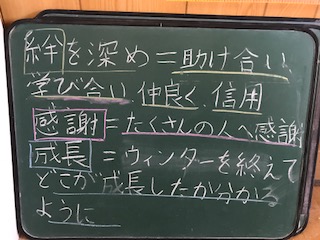 絆を深め=助け合い
学び合い 仲良く、信用
感謝=たくさんの人へ感謝
成長=ウィンターを終えて
どこが成長したか分かる
ように